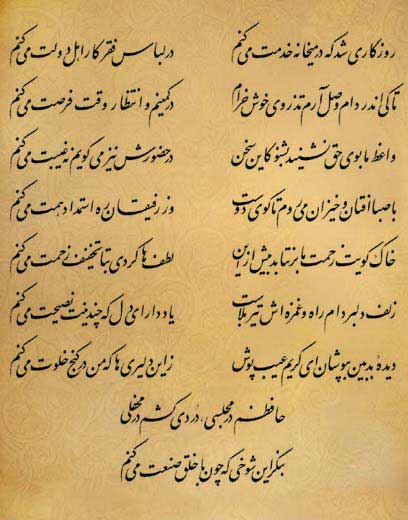 روزگاری شد که در میخانه خدمت می‌کنم در لباس فقر کار اهل دولت می‌کنم
تا کی اندر دام وصل آرم تذروی خوش خرام در کمینم و انتظار وقت فرصت می‌کنم
واعظ ما بوی حق نشنید بشنو کاین سخن در حضورش نیز می‌گویم نه غیبت می‌کنم
با صبا افتان و خیزان می‌روم تا کوی دوست وز رفیقان ره استمداد همت می‌کنم
خاک کویت زحمت ما برنتابد بیش از این لطف‌ها کردی بتا تخفیف زحمت می‌کنم
زلف دلبر دام راه و غمزه‌اش تیر بلاست یاد دار ای دل که چندینت نصیحت می‌کنم
دیدهٔ بدبین بپوشان ای کریم عیب پوش زین دلیری‌ها که من در کنج خلوت می‌کنم
حافظم در مجلسی، دردی کشم در محفلی
بنگر این شوخی که چون با خلق صنعت می‌کنم